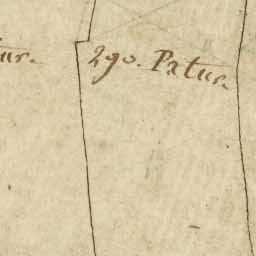 ur.
290. Patur.